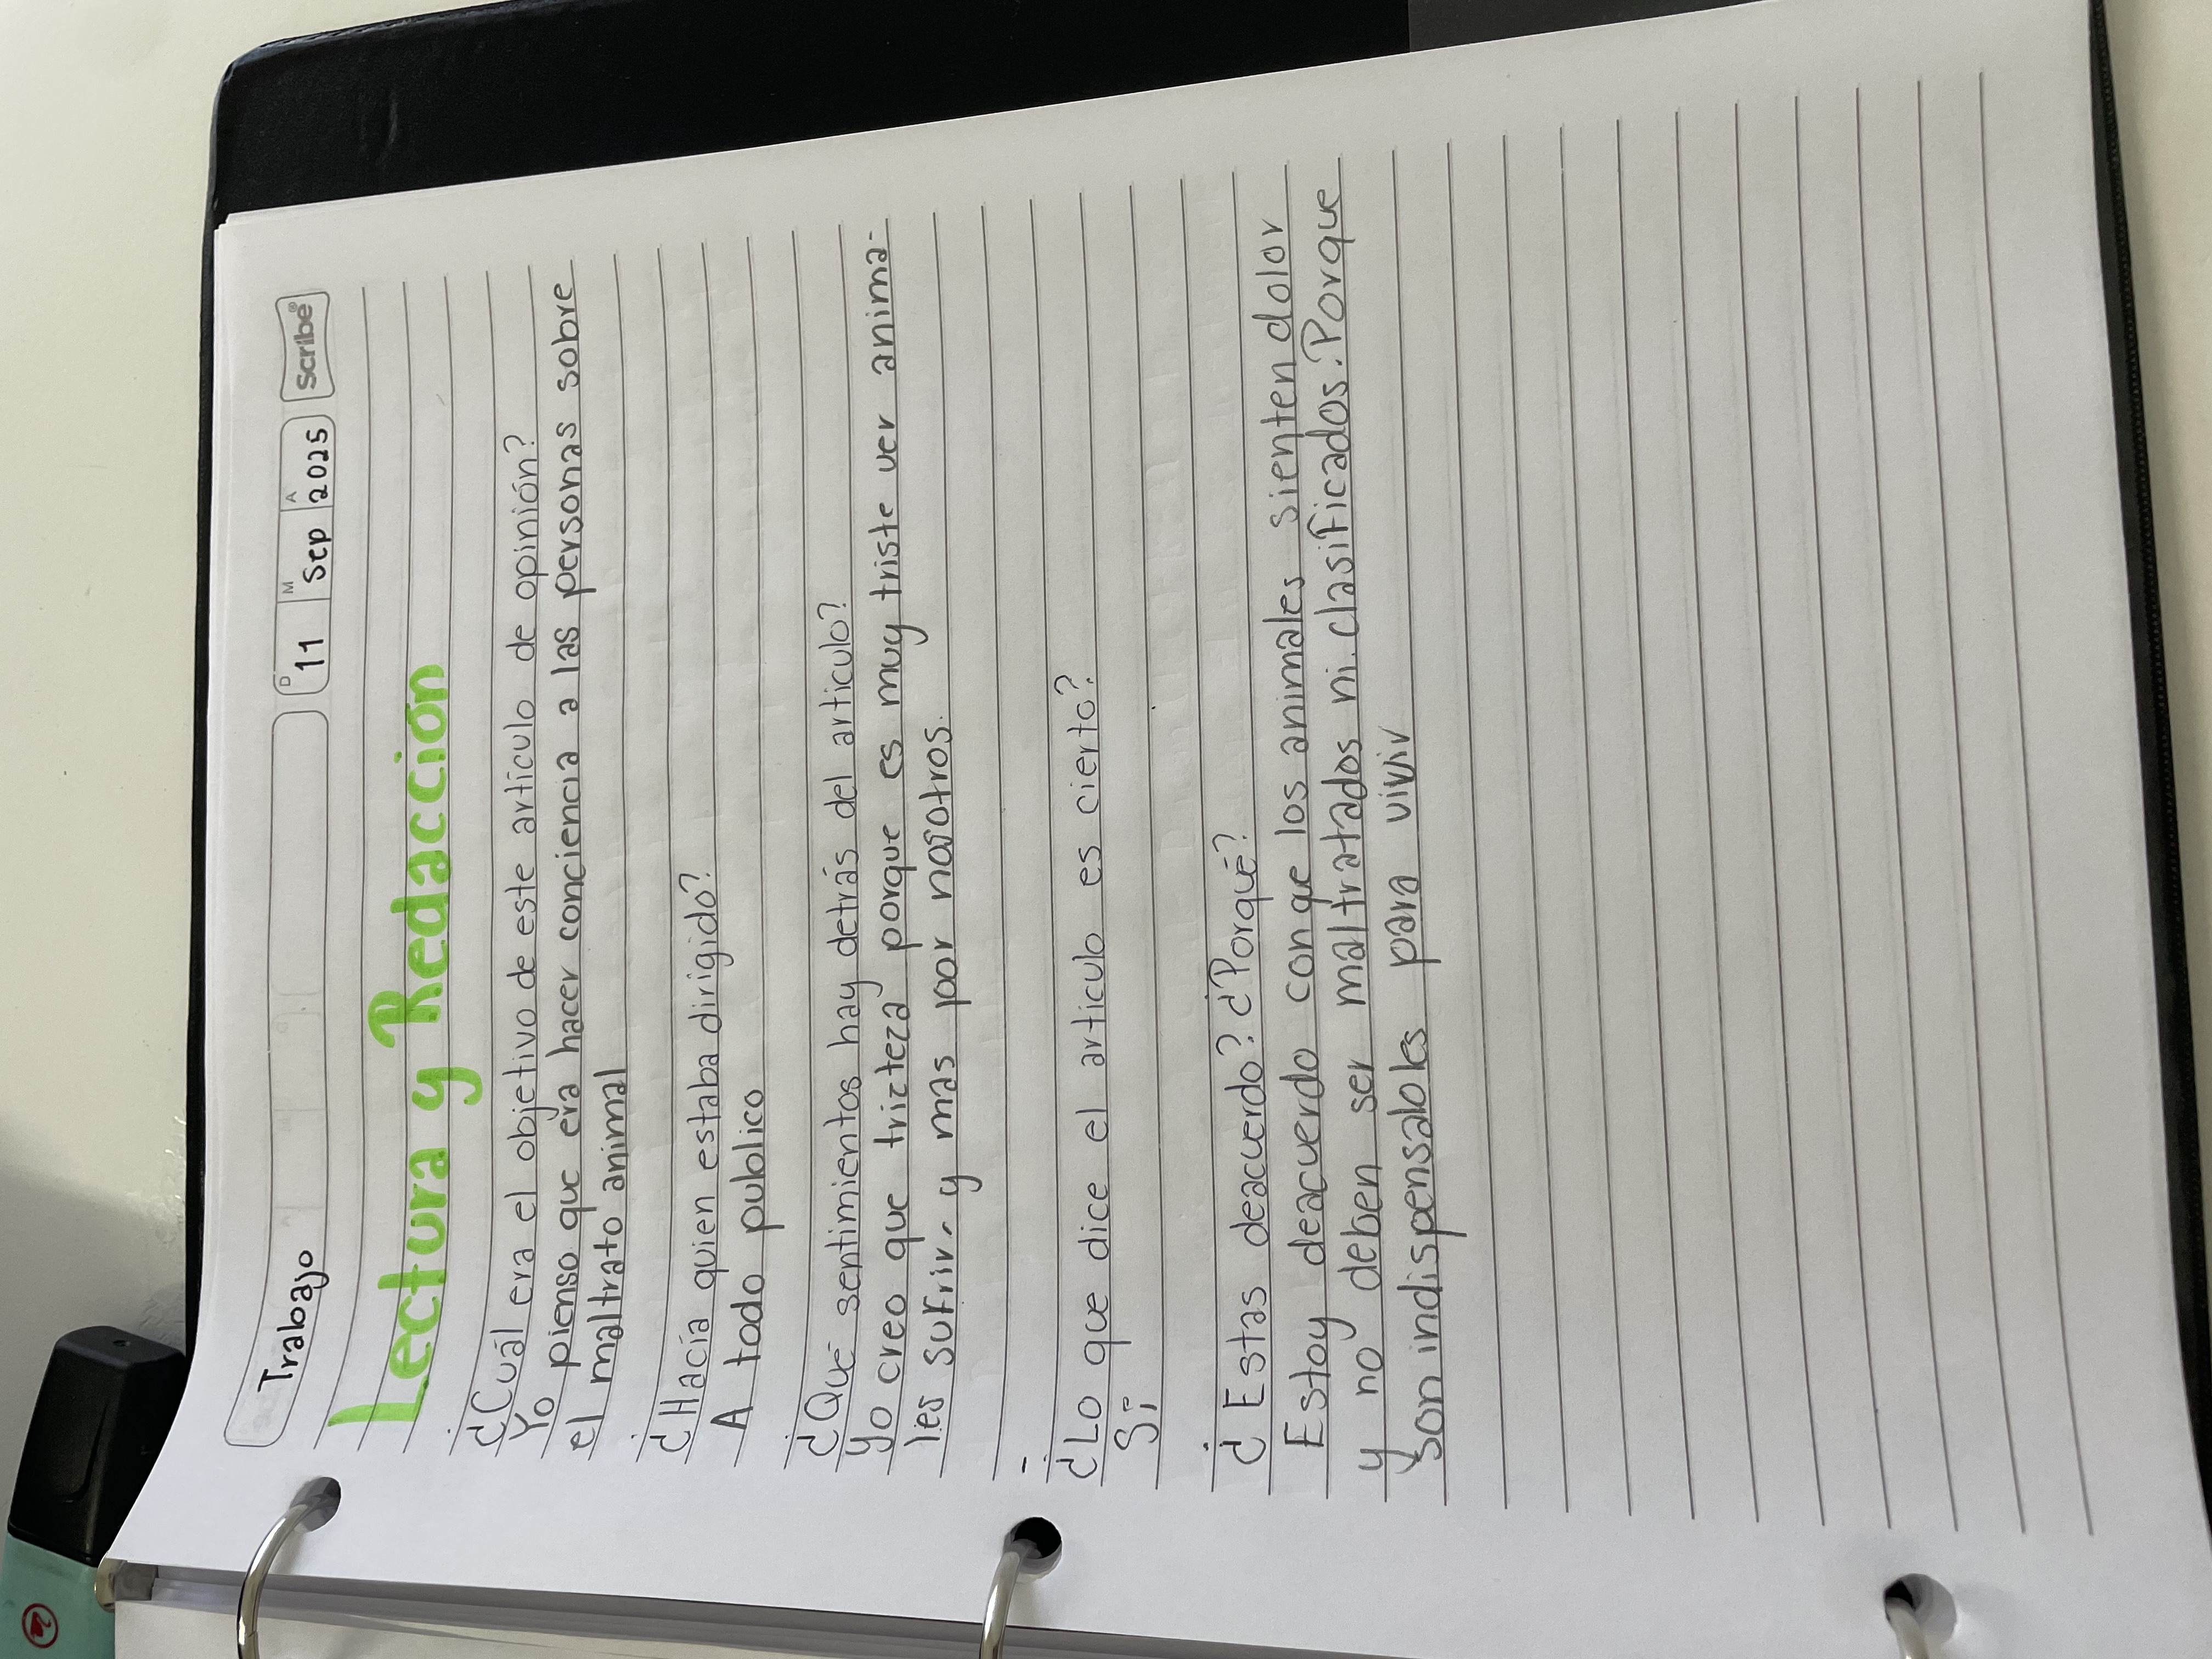 Trabajo
D M A
11 Sep 2025
Scribe®
Lectura y Redacción
¿Cuál era el objetivo de este articulo de opinión?
Yo pienso que era hacer conciencia a las personas sobre
el maltrato animal
¿Hacía quien estaba dirigido?
A todo publico
¿Qué sentimientos hay detrás del articulo?
Yo creo que tricteza porque es muy triste ver anima-
les sufrir, y mas por nosotros.
¿Lo que dice el articulo es cierto?
Si
¿Estas deacuerdo? ¿Porqué?
Estoy deacuerdo con que los animales sienten dolor
y no deben ser maltratados ni clasificados. Porque
son indispensables para vivir